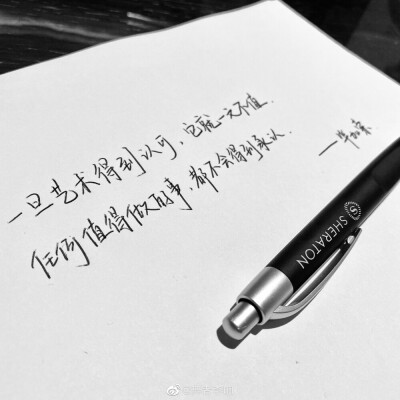 一旦艺术得到认可，它就一文不值．
任何值得做的事，都不会得到承认．
—毕加索
SHERATON